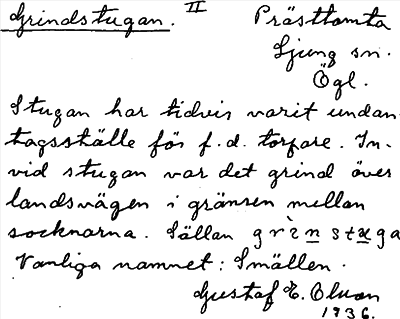 Grindstugan. II Prästtomta
Ljung sn.
Ögl.
Stugan har tidvis varit undan-
tagsställe för f.d. torpare. In-
vid stugan var det grind över
landsvägen i gränsen mellan
socknarna. Sällan grìnstuga
Vanliga namnet: Smällen.
Gustaf E. Olson
1936.